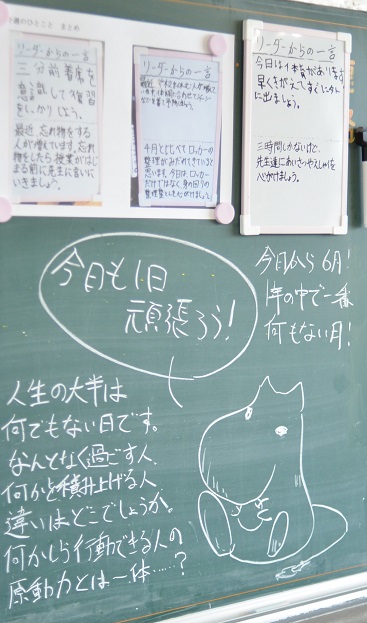 週のひとこと まとめ
リーダーからの一言
三分前着席を
意識して学習
をしっかりしよう。
最近忘れ物をする
人が増えています。忘れ
物をしたら授業がはじ
まる前に先生に言いに
いきましょう。
リーダーからの一言
4月とくらべてロッカーの
整理がみだれてきていると
思います。今日は、ロッカー
だけではなく、身の回りの
整理整とんを心がけましょう。
リーダーからの一言
今日は体育があります
早くきがえてすぐに
に出ましょう。
三時間しかないけど、
先生達にあいさつやえしゃくを
心がけましょう。
今日も1日
頑張ろう!
今日から6月!
1年の中で一番
何もない月!
人生の大半は
何でもない日です。
なんとなく過ごす人、
何かを積み上げる人
違いはどこでしょうか。
何かしら行動できる人の
原動力とは一体……?